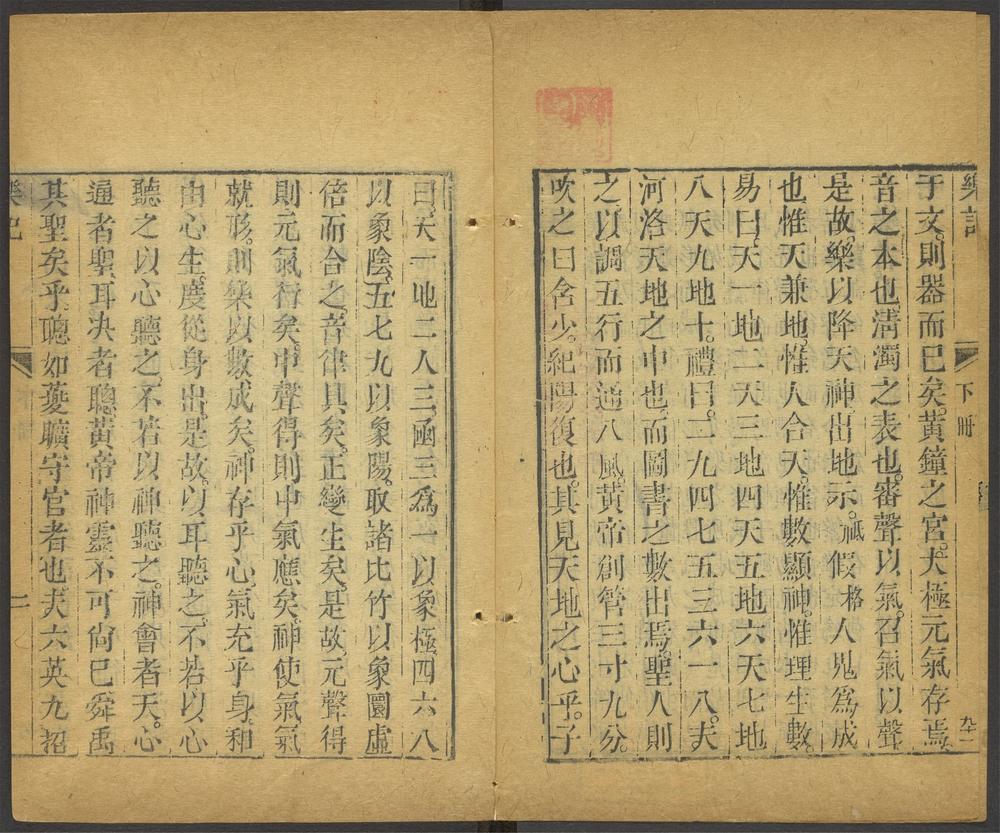 樂記
下冊
于文則器而已矣。黃鐘之宮。大極元氣存焉。
音之本也。淸濁之表也。審聲以氣。召氣以聲
是故樂以降天神出地示。祗假格人鬼爲成
也。惟天兼地。惟人合天。惟數顯神。惟理生數。
易曰。天一地二天三地四天五地六天七地
八天九地十。禮曰。二九四七五三六一八。夫
河洛天地之中也。而圖書之數出焉。聖人則
之。以調五行而遒八風。黃帝創管三寸九分。
吹之曰含少。紀陽復也。其見天地之心乎。子
曰。天一地二人三。函三爲一以象極。四六八
以象陰。五七九以象陽。取諸比竹以象圜虛
倍而合之。音律具矣。正變生矣。是故元聲得
則元氣行矣。中聲得則中氣應矣。神使氣。氣
就形。則樂以數成矣。神存乎心。氣充乎身。和
由心生。度從身出。是故以耳聽之。不若以心
聽之。以心聽之。不若以神聽之。神會者天。心
通者聖。耳决者聰。黃帝神靈不可尙已。舜禹
其聖矣乎。聰如夔曠。守官者也。夫六英九招
樂記
二